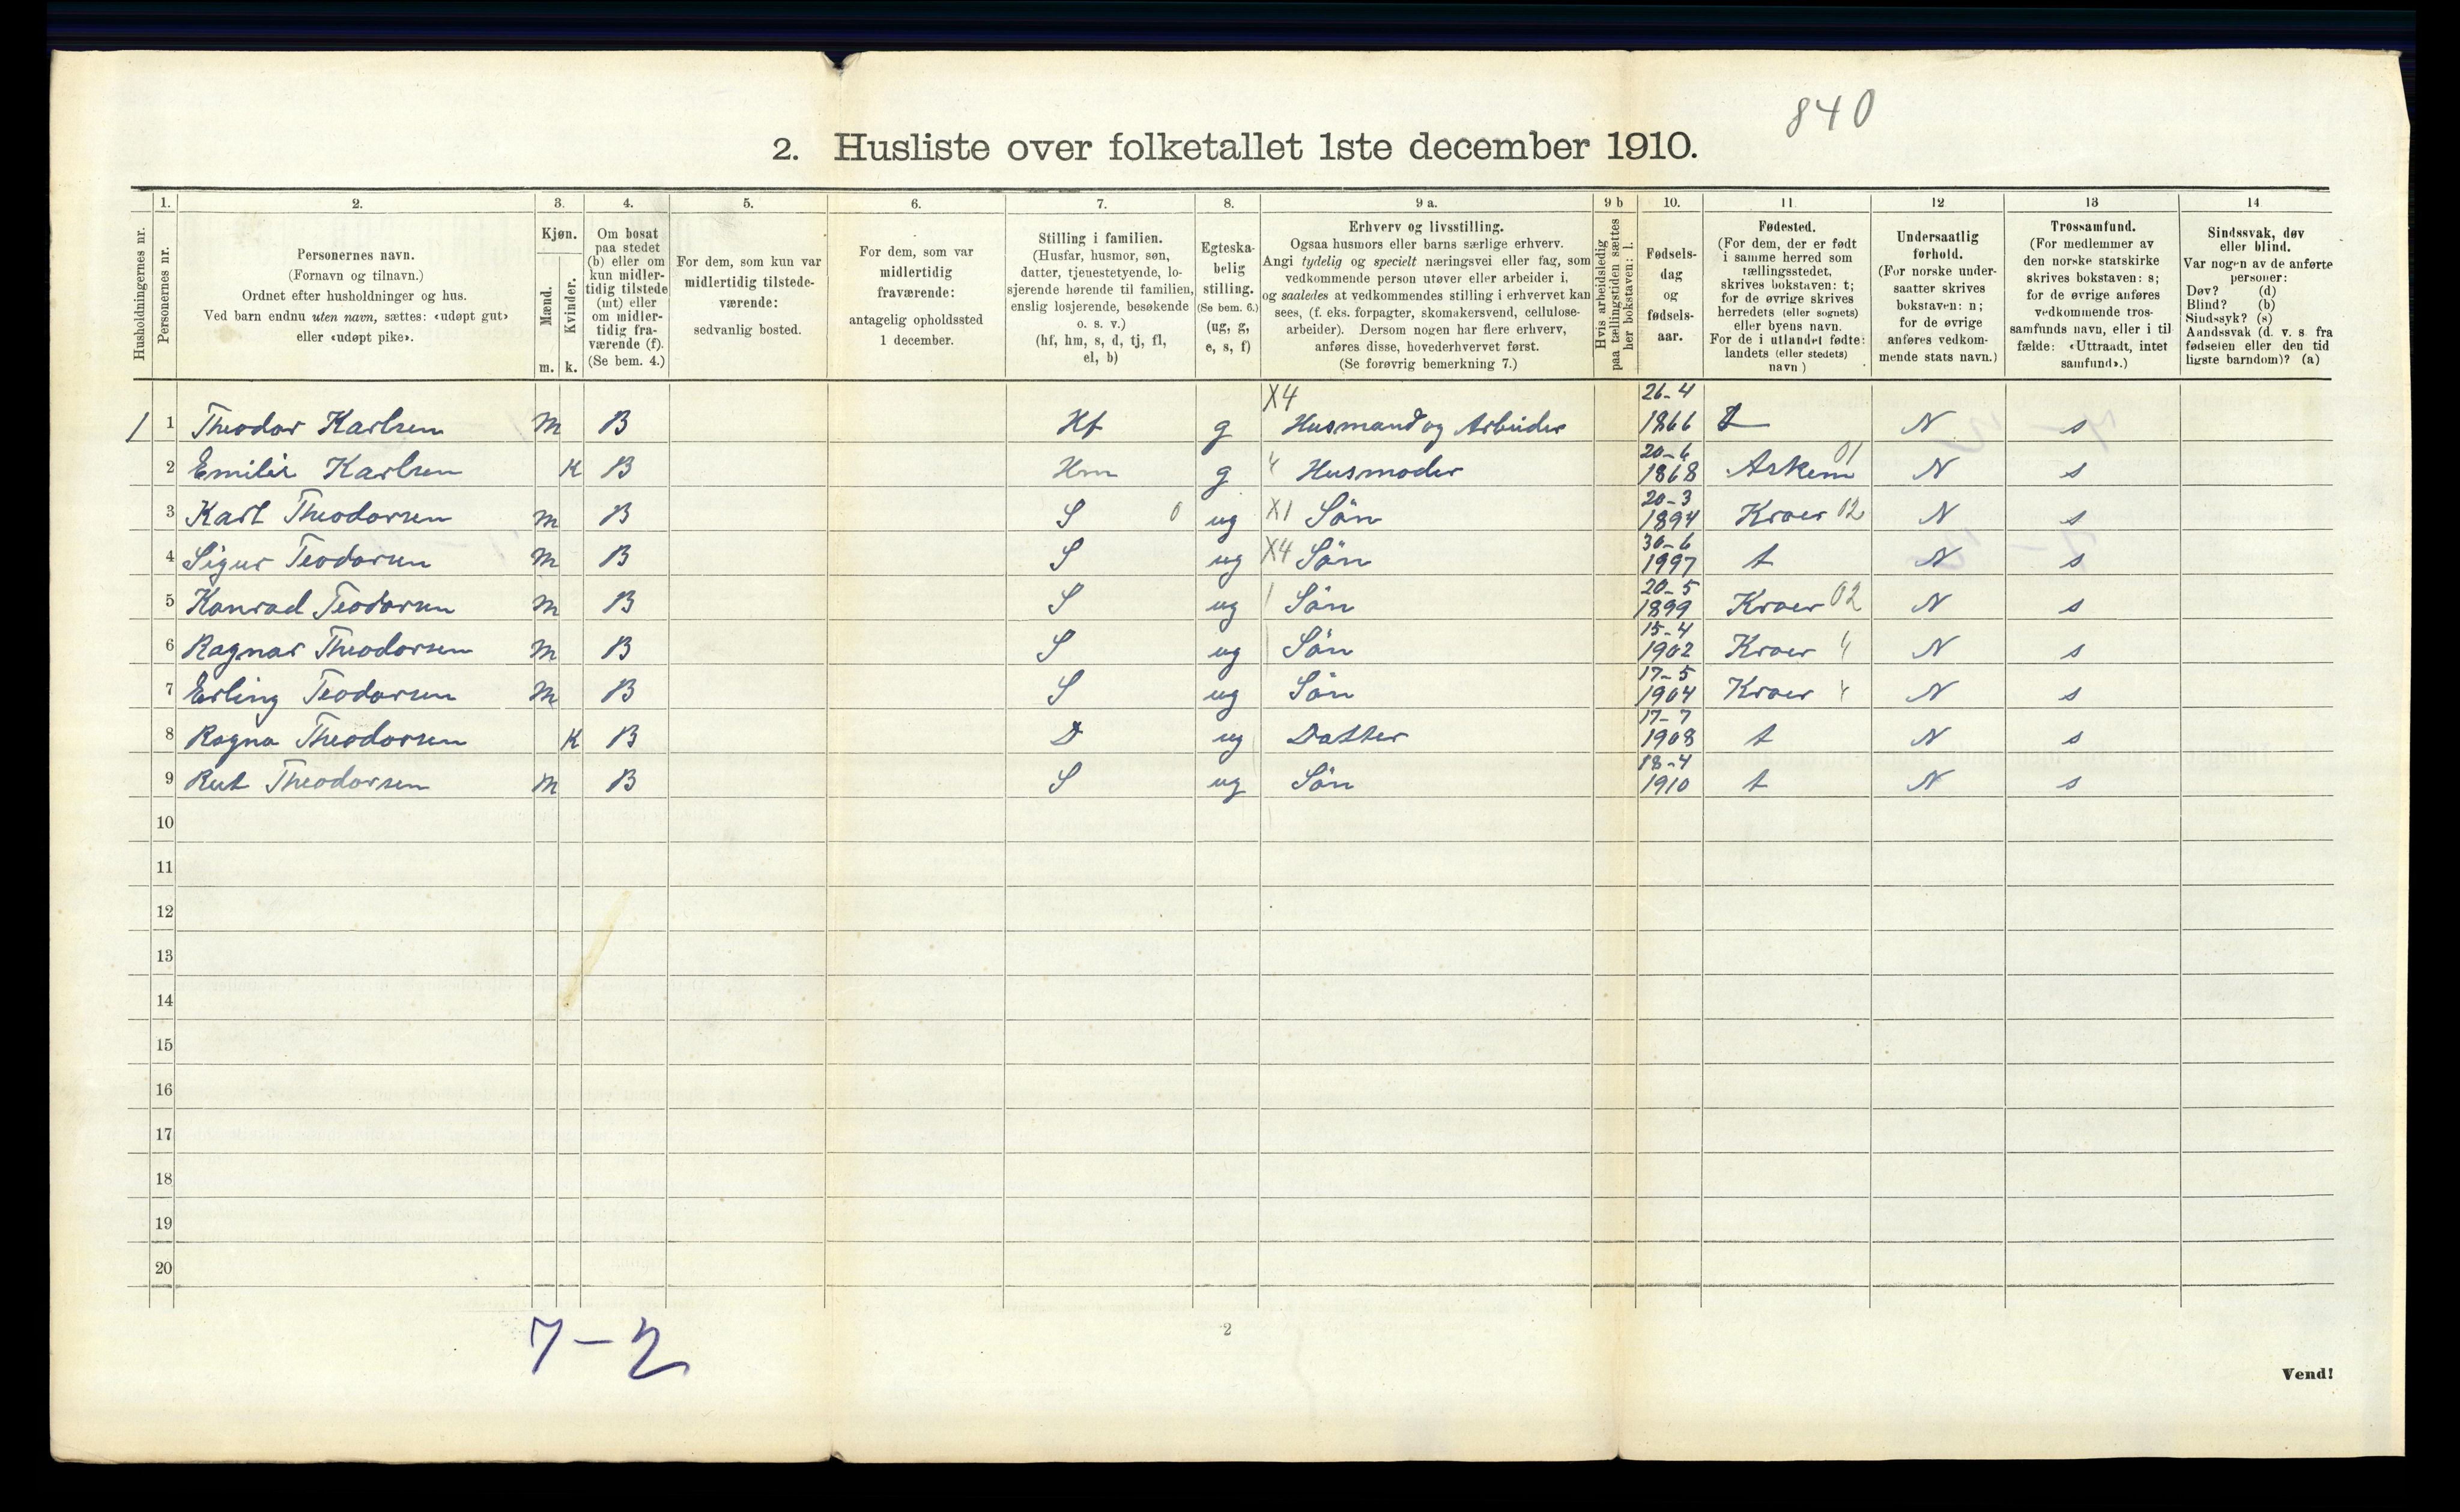 840
2. Husliste over folketallet 1ste december 1910.
Husholdningernes nr.
1. Personernes nr.
2. Personernes navn. (Fornavn og tilnavn.) Ordnet efter husholdninger og hus. Ved barn endnu uten navn, sættes: «udøpt gut» eller «udøpt pike».
3. Kjøn. Mænd. Kvinder. m. k.
4. Om bosat paa stedet (b) eller om kun midlertidig tilstede (mt) eller om midlertidig fraværende (f). (Se bem. 4.)
5. For dem, som kun var midlertidig tilstedeværende: sedvanlig bosted.
6. For dem, som var midlertidig fraværende: antagelig opholdssted 1 december.
7. Stilling i familien. (Husfar, husmor, søn, datter, tjenestetyende, losjerende hørende til familien, enslig losjerende, besøkende o. s. v.) (hf, hm, s, d, tj, fl, el, b)
8. Egteskabelig stilling. (Se bem. 6.) (ug, g, e, s, f)
9 a. Erhverv og livsstilling. Ogsaa husmors eller barns særlige erhverv. Angi tydelig og specielt næringsvei eller fag, som vedkommende person utøver eller arbeider i, og saaledes at vedkommendes stilling i erhvervet kan sees, (f. eks. forpagter, skomakersvend, cellulosearbeider). Dersom nogen har flere erhverv, anføres disse, hovederhvervet først. (Se forøvrig bemerkning 7.)
9 b Hvis arbeidsledig paa tællingstiden sættes her bokstaven: l.
10. Fødselsdag og fødselsaar.
11 Fødested. (For dem, der er født i samme herred som tællingsstedet, skrives bokstaven: t; for de øvrige skrives herredets (eller sognets) eller byens navn. For de i utlandet fødte: landets (eller stedets) navn)
12 Undersaatlig forhold. (For norske undersaatter skrives bokstaven: n; for de øvrige anføres vedkommende stats navn.)
13 Trossamfund. (For medlemmer av den norske statskirke skrives bokstaven: s; for de øvrige anføres vedkommende trossamfunds navn, eller i tilfælde: «Uttraadt, intet samfund».)
14 Sindssvak, døv eller blind. Var nogen av de anførte personer: Døv? (d) Blind? (b) Sindssyk? (s) Aandssvak (d. v. s. fra fødselen eller den tidligste barndom)? (a)
1 1 Theodor Karlsen m B Hf g X4 Husmand og Arbeider 26-4 1866 t N s
2 Emilie Karlsen K B Hm g 4 Husmoder 20-6 1868 Askem 01 N s
3 Karl Theodorsen m B S 0 ug X1 Sön 20-3 1894 Kroer 02 N s
4 Sigur Teodorsen m B S ug X4 Sön 30-6 1997 t N s
5 Konrad Teodorsen m B S ug 1 Sön 20-5 1899 Kroer 02 N s
6 Ragnar Theodorsen m B S ug 1 Sön 15-4 1902 Kroer 4 N s
7 Erling Teodorsen m B S ug Sön 17-5 1904 Kroer 4 N s
8 Ragna Theodorsen K B D ug Datter 17-7 1908 t N s
9 Rut Theodorsen m B S ug Sön 18-4 1910 t N s
10
11
12
13
14
15
16
17
18
19
20
7-2
2
Vend!